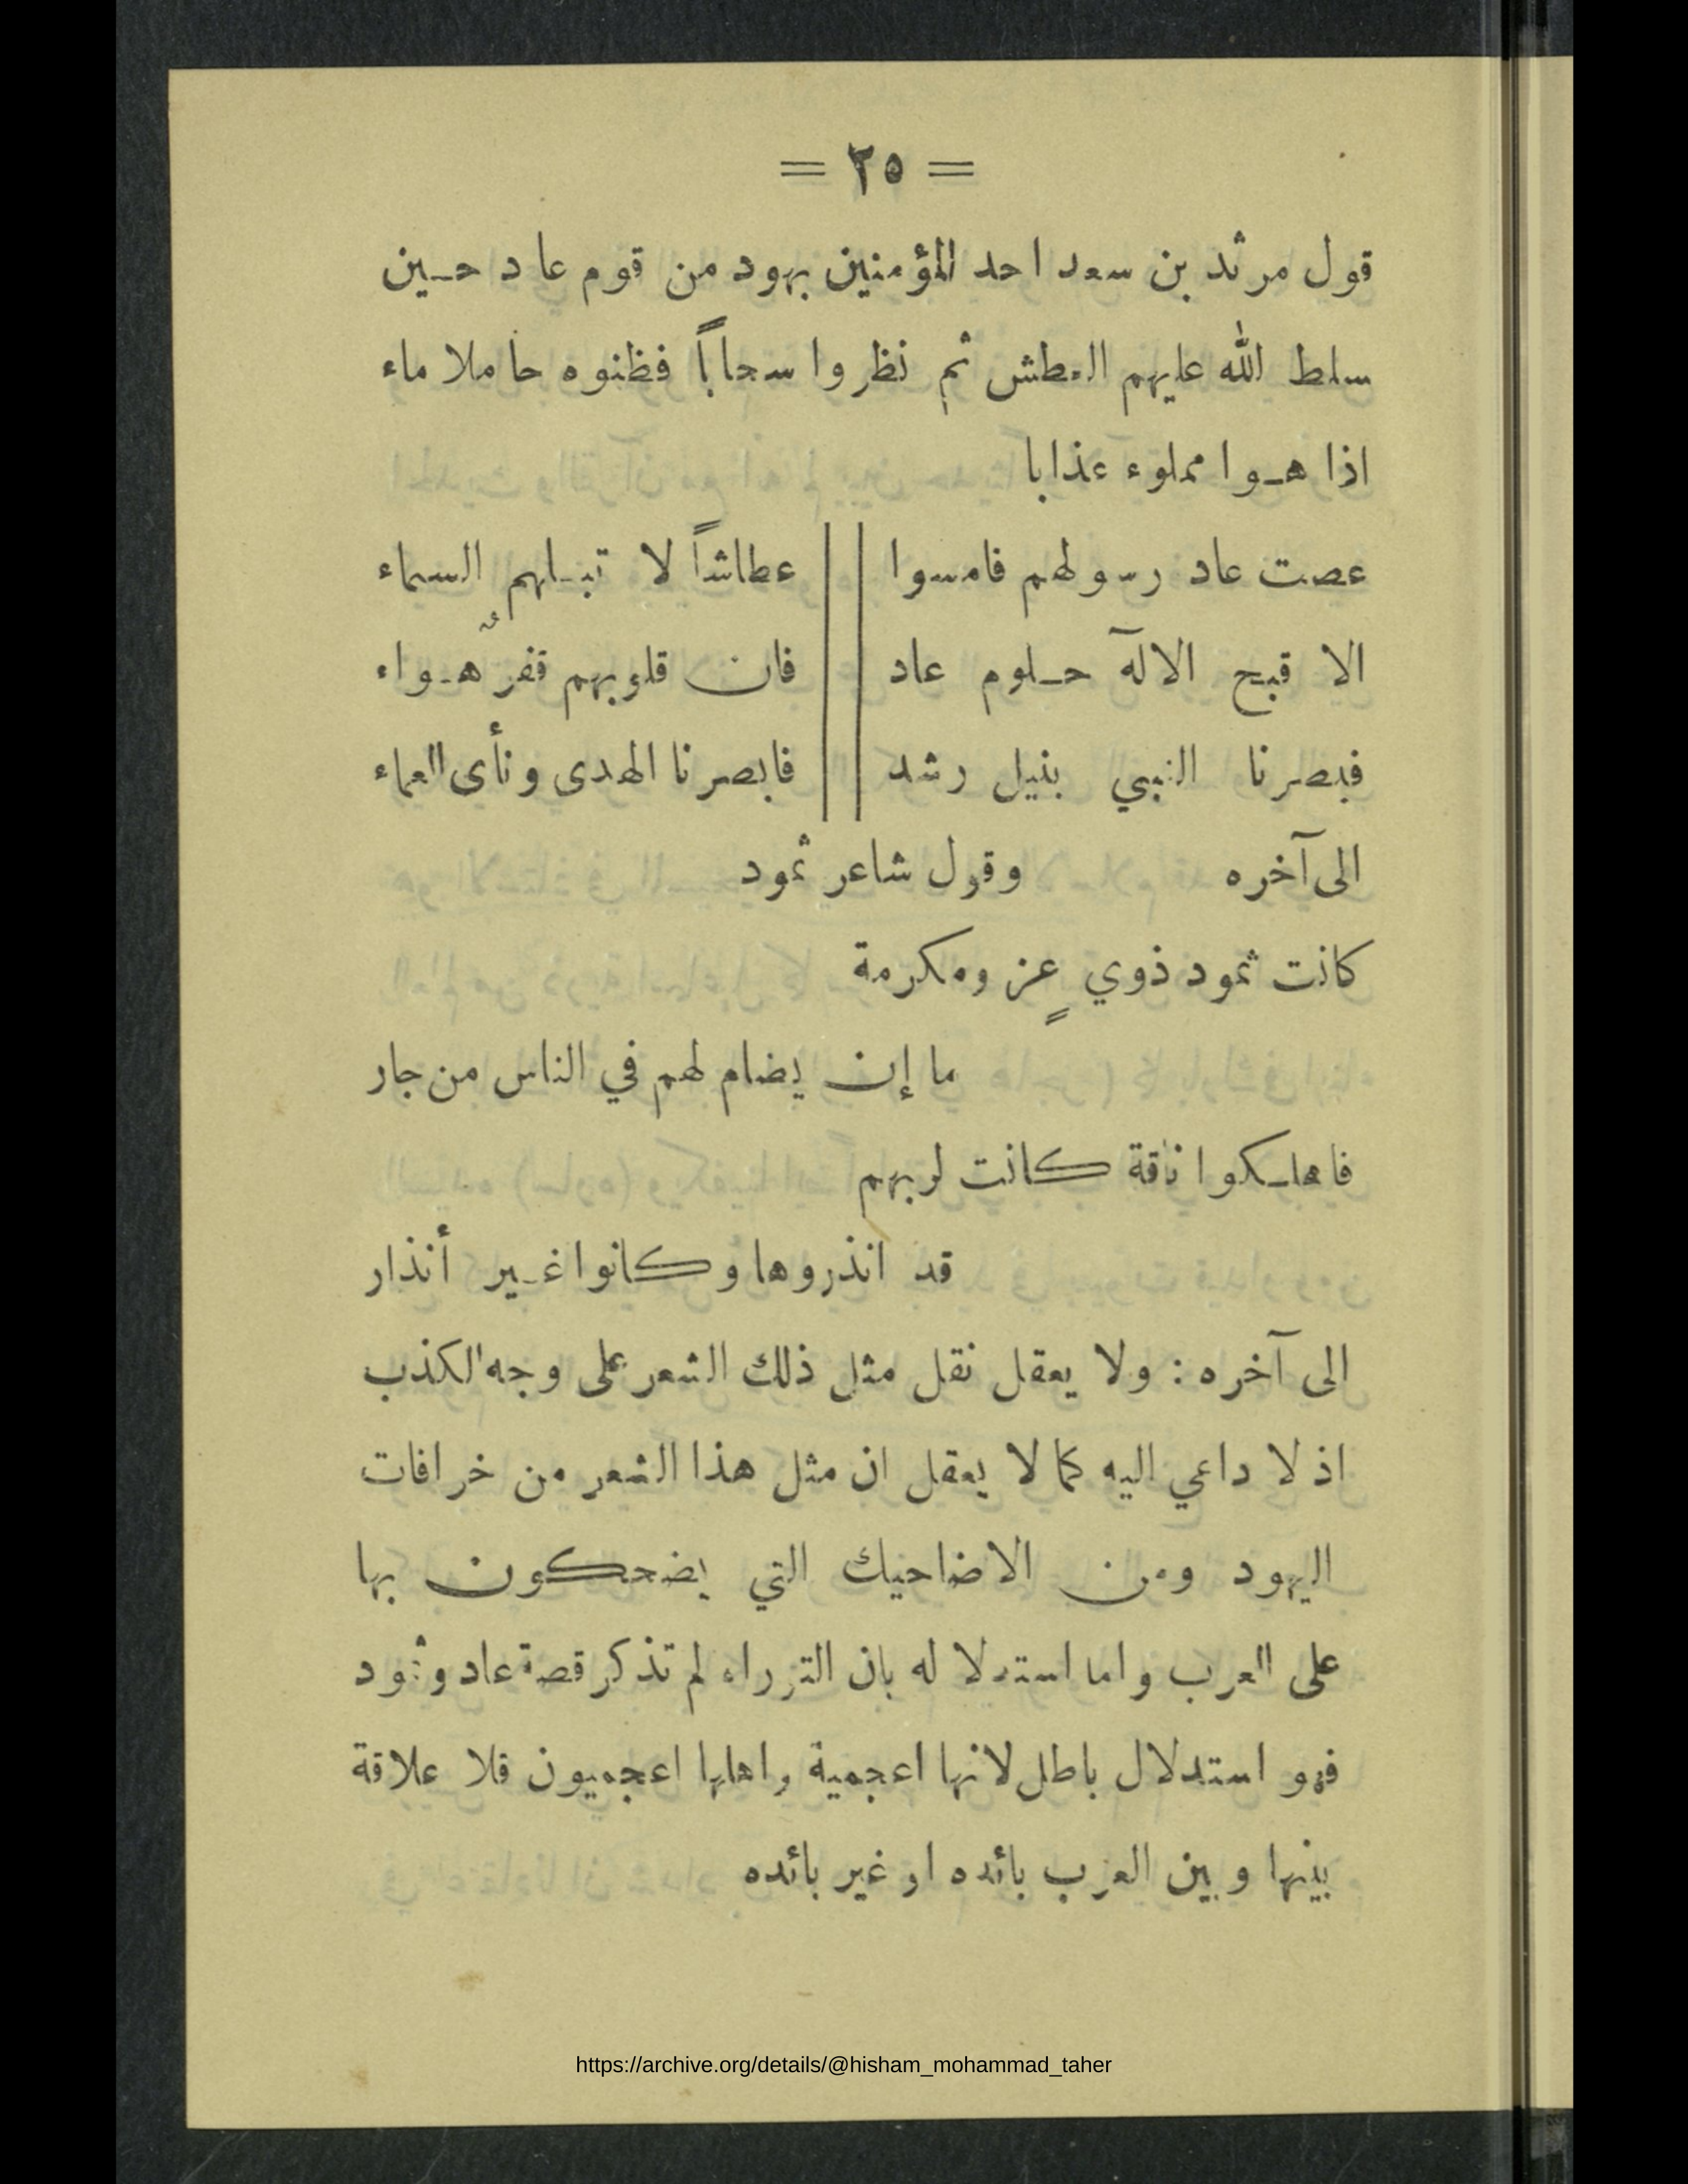 = ٢٥ =
قول مرثد بن سعد احد المؤمنين بهود من قوم عاد حـين
سلط الله عليهم العطش ثم نظروا سحاباً فظنوه حاملا ماء
اذا هـوا مملوء عذابا
عصت عاد رسولهم فامسوا عطاشاً لا تبـلهم السماء
الا قبح الالآه حـلوم عاد فان قلوبهم قفرٌ هـواء
فبصرنا النبي بنيل رشد فابصرنا الهدى ونأى العماء
الى آخره وقول شاعر ثمود
كانت ثمود ذوي عزٍ ومكرمة
ما إن يضام لهم في الناس من جار
فاهلـكوا ناقة كانت لربهم
قد انذروها وكانوا غـير أنذار
الى آخره : ولا يعقل نقل مثل ذلك الشعر على وجه الكذب
اذ لا داعي اليه كما لا يعقل ان مثل هذا الشعر من خرافات
اليهود ومن الاضاحيك التي يضحكون بها
على العرب واما استدلا له بان التوراه لم تذكر قصة عاد وثمود
فهو استدلال باطل لانها اعجمية واهلها اعجميون فلا علاقة
بينها وبين العرب بائده او غير بائده
https://archive.org/details/@hisham_mohammad_taher